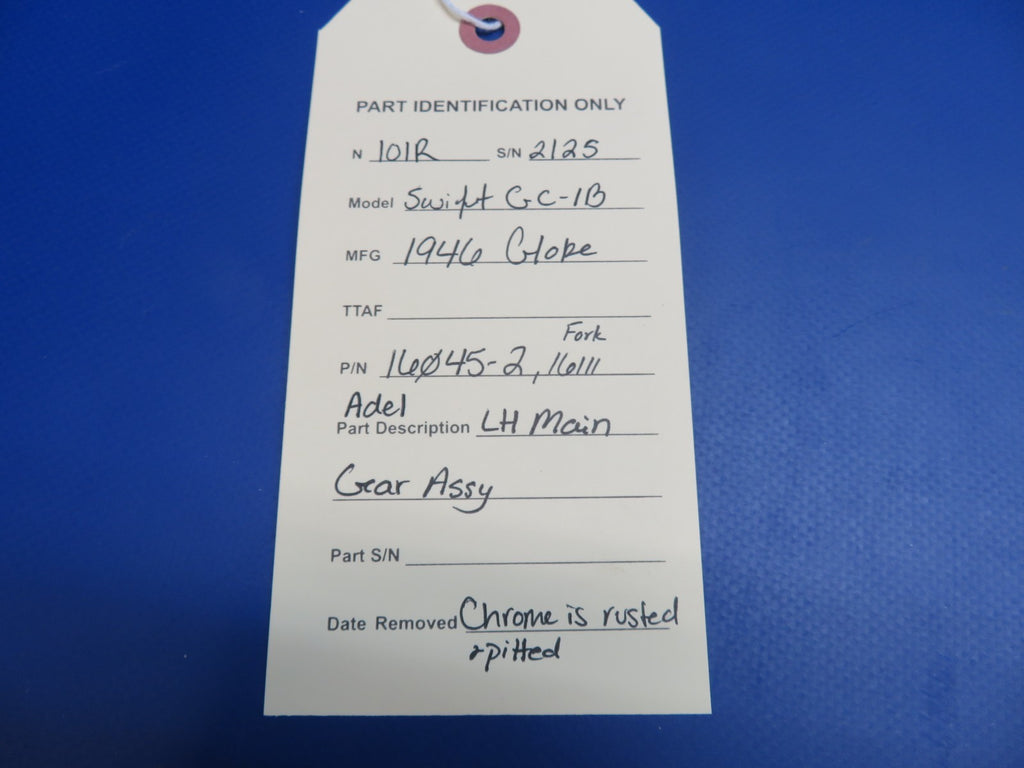 PART IDENTIFICATION ONLY
N 101R S/N 2125
Model Swift GC-1B
MFG 1946 Globe
TTAF
Fork
P/N 16Ø45-2, 16111
Adel
Part Description LH Main
Gear Assy
Part S/N
Date Removed Chrome is rusted
& pitted